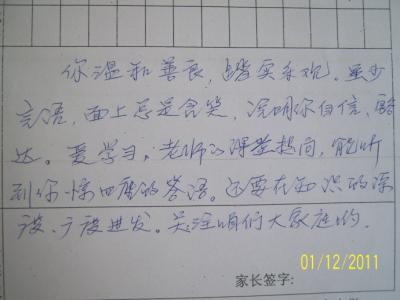 你温和善良,踏实乐观。虽少
言语,面上总是含笑,说明你自信、豁
达。爱学习,老师的课堂提问,能听
到你惊四座的答语。还要在知识的深
度、广度进发。关注咱们大家庭的。
01/12/2011
家长签字: